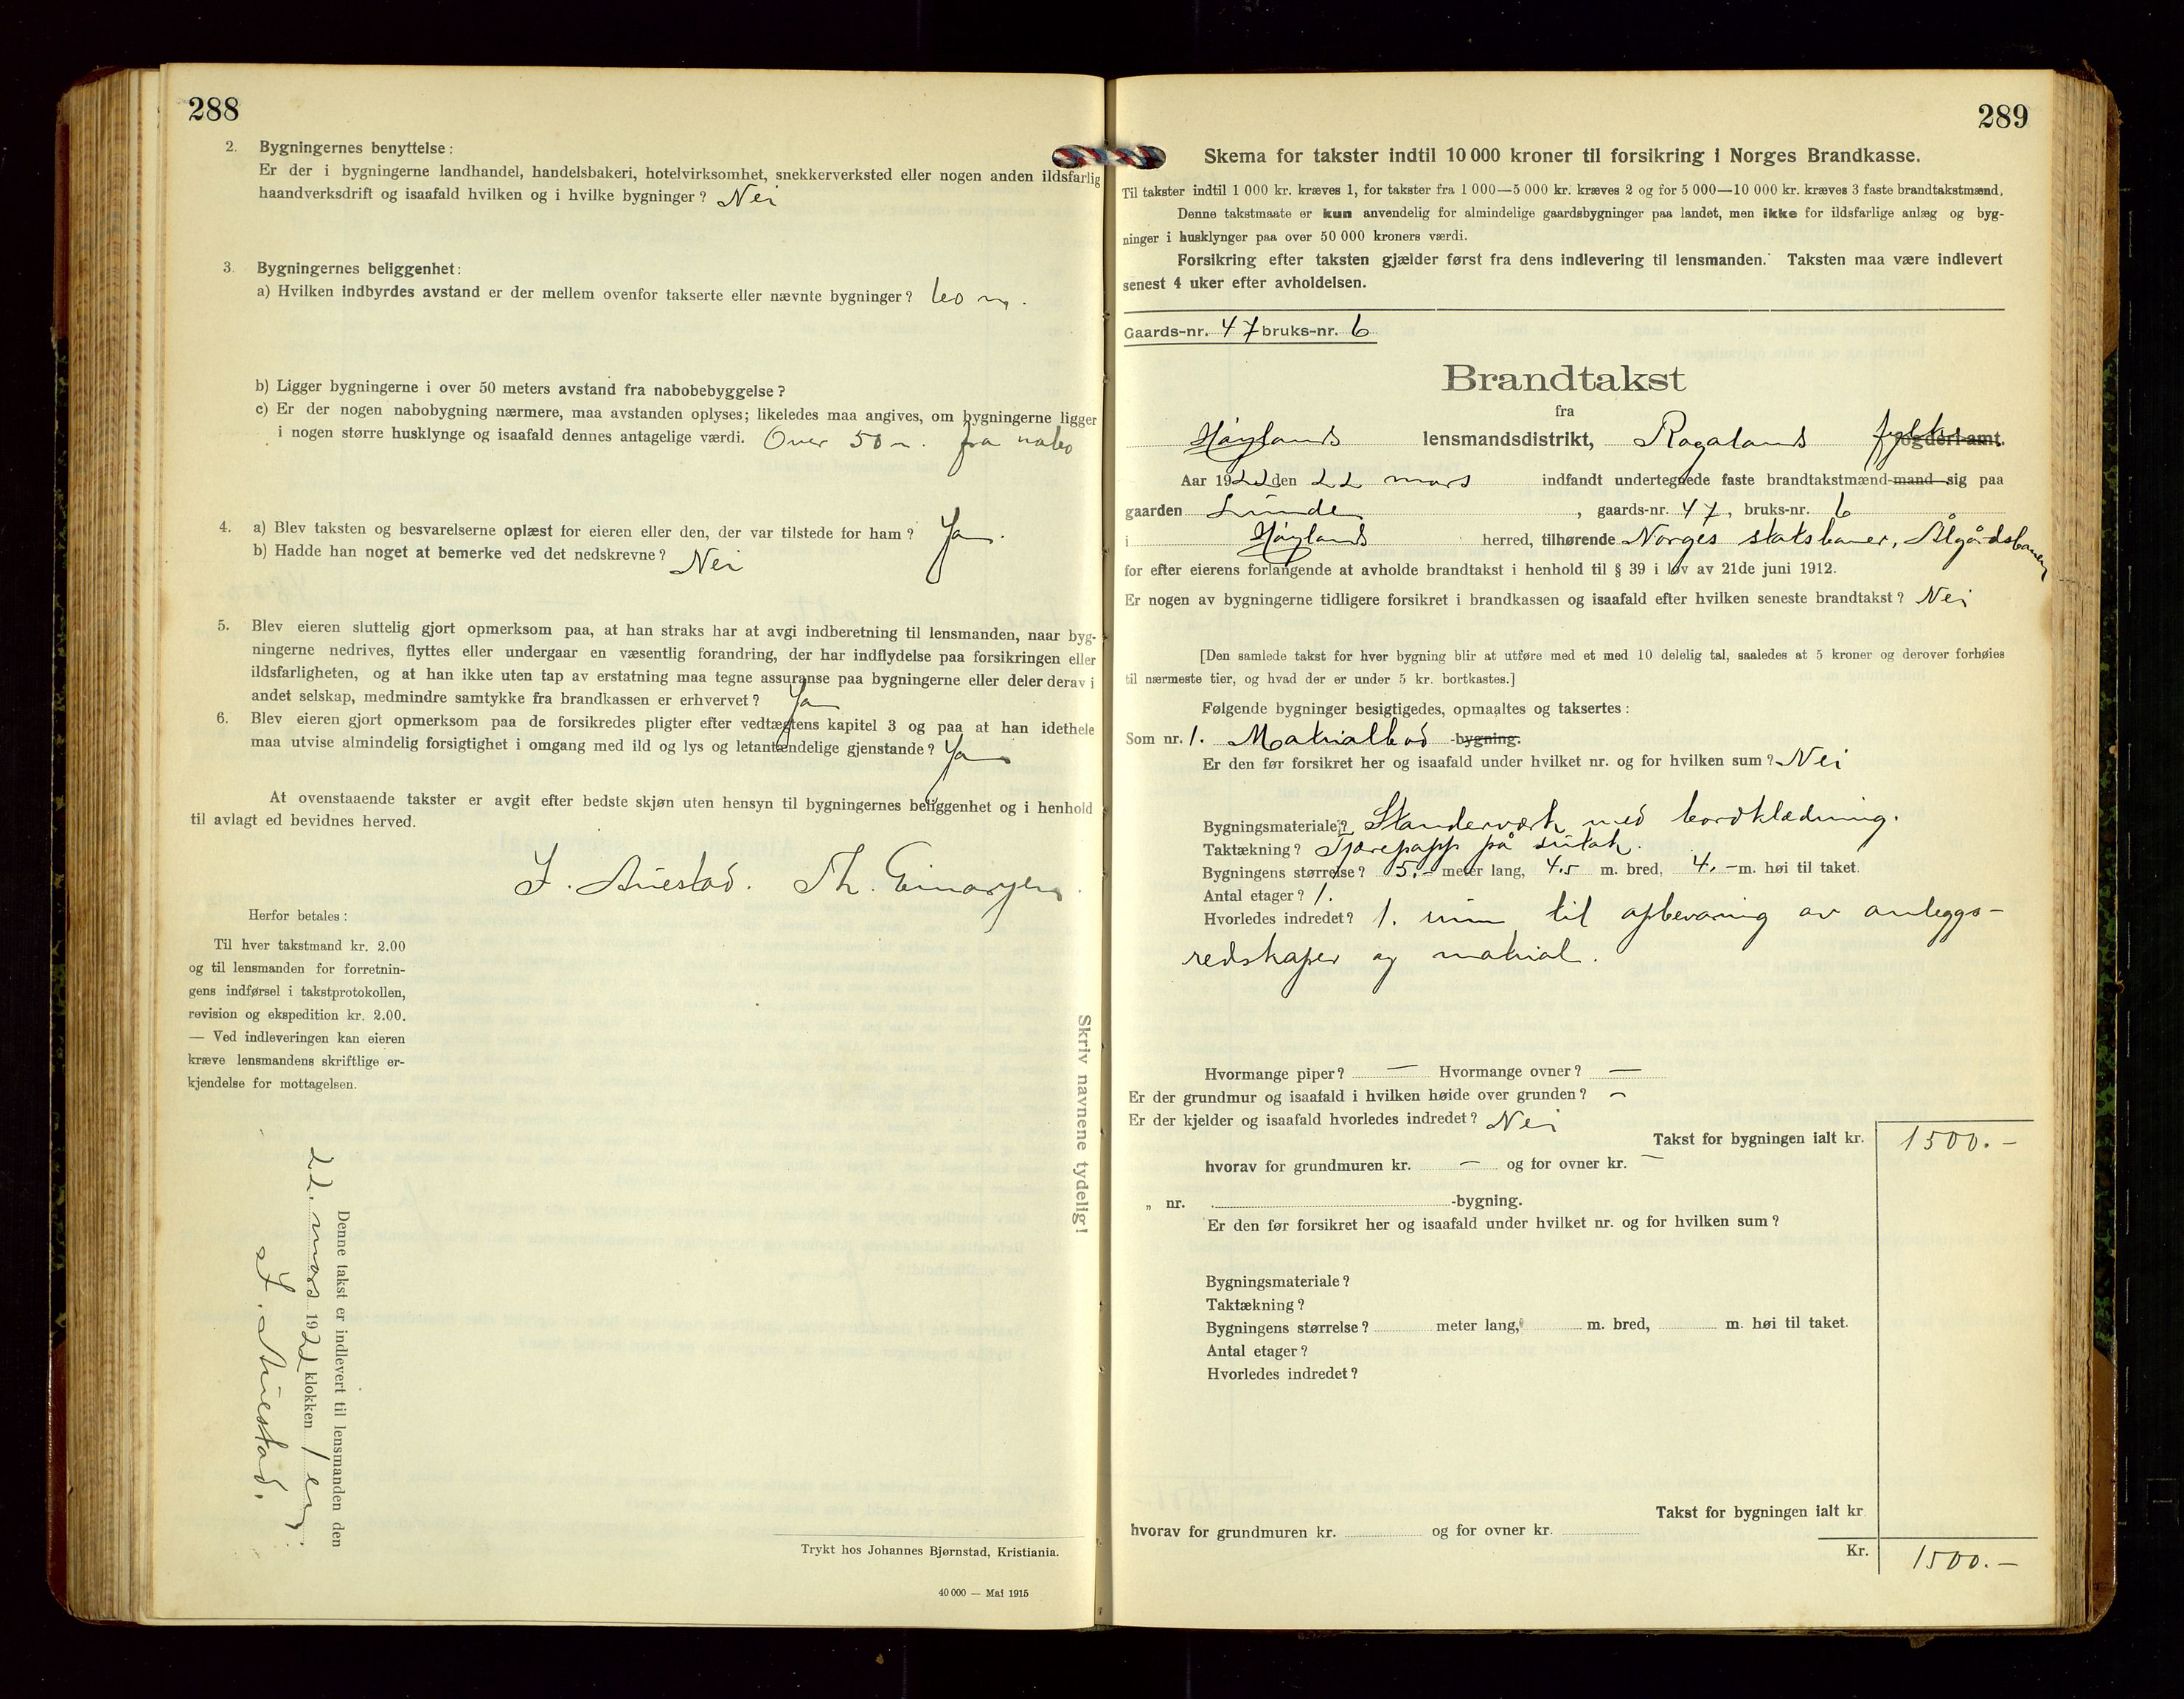 288
2. Bygningernes benyttelse:
Er der i bygningerne landhandel, handelsbakeri, hotelvirksomhet, snekkerverksted eller nogen anden ildsfarlig
haandverksdrift og isaafald hvilken og i hvilke bygninger? Nei
3. Bygningernes beliggenhet:
a) Hvilken indbyrdes avstand er der mellem ovenfor takserte eller nævnte bygninger? m.
b) Ligger bygningerne i over 50 meters avstand fra nabobebyggelse?
c) Er der nogen nabobygning nærmere, maa avstanden oplyses; likeledes maa angives, om bygningerne ligger
i nogen større husklynge og isaafald dennes antagelige værdi. Over 50 m. fra nabo
4. a) Blev taksten og besvarelserne oplæst for eieren eller den, der var tilstede for ham? Ja.
b) Hadde han noget at bemerke ved det nedskrevne? Nei
5. Blev eieren sluttelig gjort opmerksom paa, at han straks har at avgi indberetning til lensmanden, naar byg-
ningerne nedrives, flyttes eller undergaar en væsentlig forandring, der har indflydelse paa forsikringen eller
ildsfarligheten, og at han ikke uten tap av erstatning maa tegne assuranse paa bygningerne eller deler derav i
andet selskap, medmindre samtykke fra brandkassen er erhvervet? Ja
6. Blev eieren gjort opmerksom paa de forsikredes pligter efter vedtægtens kapitel 3 og paa at han idethele
maa utvise almindelig forsigtighet i omgang med ild og lys og letantændelige gjenstande? Ja
At ovenstaaende takster er avgit efter bedste skjøn uten hensyn til bygningernes beliggenhet og i henhold
til avlagt ed bevidnes herved.
I. Auestad. Th. Einarsen.
Herfor betales:
Til hver takstmand kr. 2.00
og til lensmanden for forretnin-
gens indførsel i takstprotokollen,
revision og ekspedition kr. 2.00.
— Ved indleveringen kan eieren
kræve lensmandens skriftlige er-
kjendelse for mottagelsen.
Skriv navnene tydelig!
Denne takst er indlevert til lensmanden den
22. mars 1922 klokken 1 em.
I. Auestad.
Trykt hos Johannes Bjørnstad, Kristiania.
40 000 — Mai 1915
289
Skema for takster indtil 10 000 kroner til forsikring i Norges Brandkasse.
Til takster indtil 1 000 kr. kræves 1, for takster fra 1 000—5 000 kr. kræves 2 og for 5 000—10 000 kr. kræves 3 faste brandtakstmænd.
Denne takstmaate er kun anvendelig for almindelige gaardsbygninger paa landet, men ikke for ildsfarlige anlæg og byg-
ninger i husklynger paa over 50 000 kroners værdi.
Forsikring efter taksten gjælder først fra dens indlevering til lensmanden. Taksten maa være indlevert
senest 4 uker efter avholdelsen.
Gaards-nr. 47 bruks-nr. 6
Brandtakst
fra
Høylands lensmandsdistrikt, Rogalands fylke fogderi amt.
Aar 1922 den 22 mars indfandt undertegnede faste brandtakstmænd-mand sig paa
gaarden Lunde, gaards-nr. 47, bruks-nr. 6
i Høylands herred, tilhørende Norges statsbaner, Ålgårdsbanen
for efter eierens forlangende at avholde brandtakst i henhold til § 39 i løv av 21de juni 1912.
Er nogen av bygningerne tidligere forsikret i brandkassen og isaafald efter hvilken seneste brandtakst? Nei
[Den samlede takst for hver bygning blir at utføre med et med 10 delelig tal, saaledes at 5 kroner og derover forhøies
til nærmeste tier, og hvad der er under 5 kr. bortkastes.]
Følgende bygninger besigtigedes, opmaaltes og taksertes:
Som nr. 1. Materialbod -bygning.
Er den før forsikret her og isaafald under hvilket nr. og for hvilken sum? Nei
Bygningsmateriale? Standerværk med bordklædning.
Taktækning? Tjærepapp på sutak.
Bygningens størrelse? 5.- meter lang, 4.5 m. bred, 4.- m. høi til taket.
Antal etager? 1.
Hvorledes indredet? 1. rum til opbevaring av anleggs-
redskaper og material.
Hvormange piper? — Hvormange ovner? —
Er der grundmur og isaafald i hvilken høide over grunden? —
Er der kjelder og isaafald hvorledes indredet? Nei
Takst for bygningen ialt kr. 1500.-
hvorav for grundmuren kr. — og for ovner kr. —
„ nr. -bygning.
Er den før forsikret her og isaafald under hvilket nr. og for hvilken sum?
Bygningsmateriale?
Taktækning?
Bygningens størrelse? meter lang, m. bred, m. høi til taket.
Antal etager?
Hvorledes indredet?
Takst for bygningen ialt kr
hvorav for grundmuren kr. og for ovner kr.
Kr. 1500.-